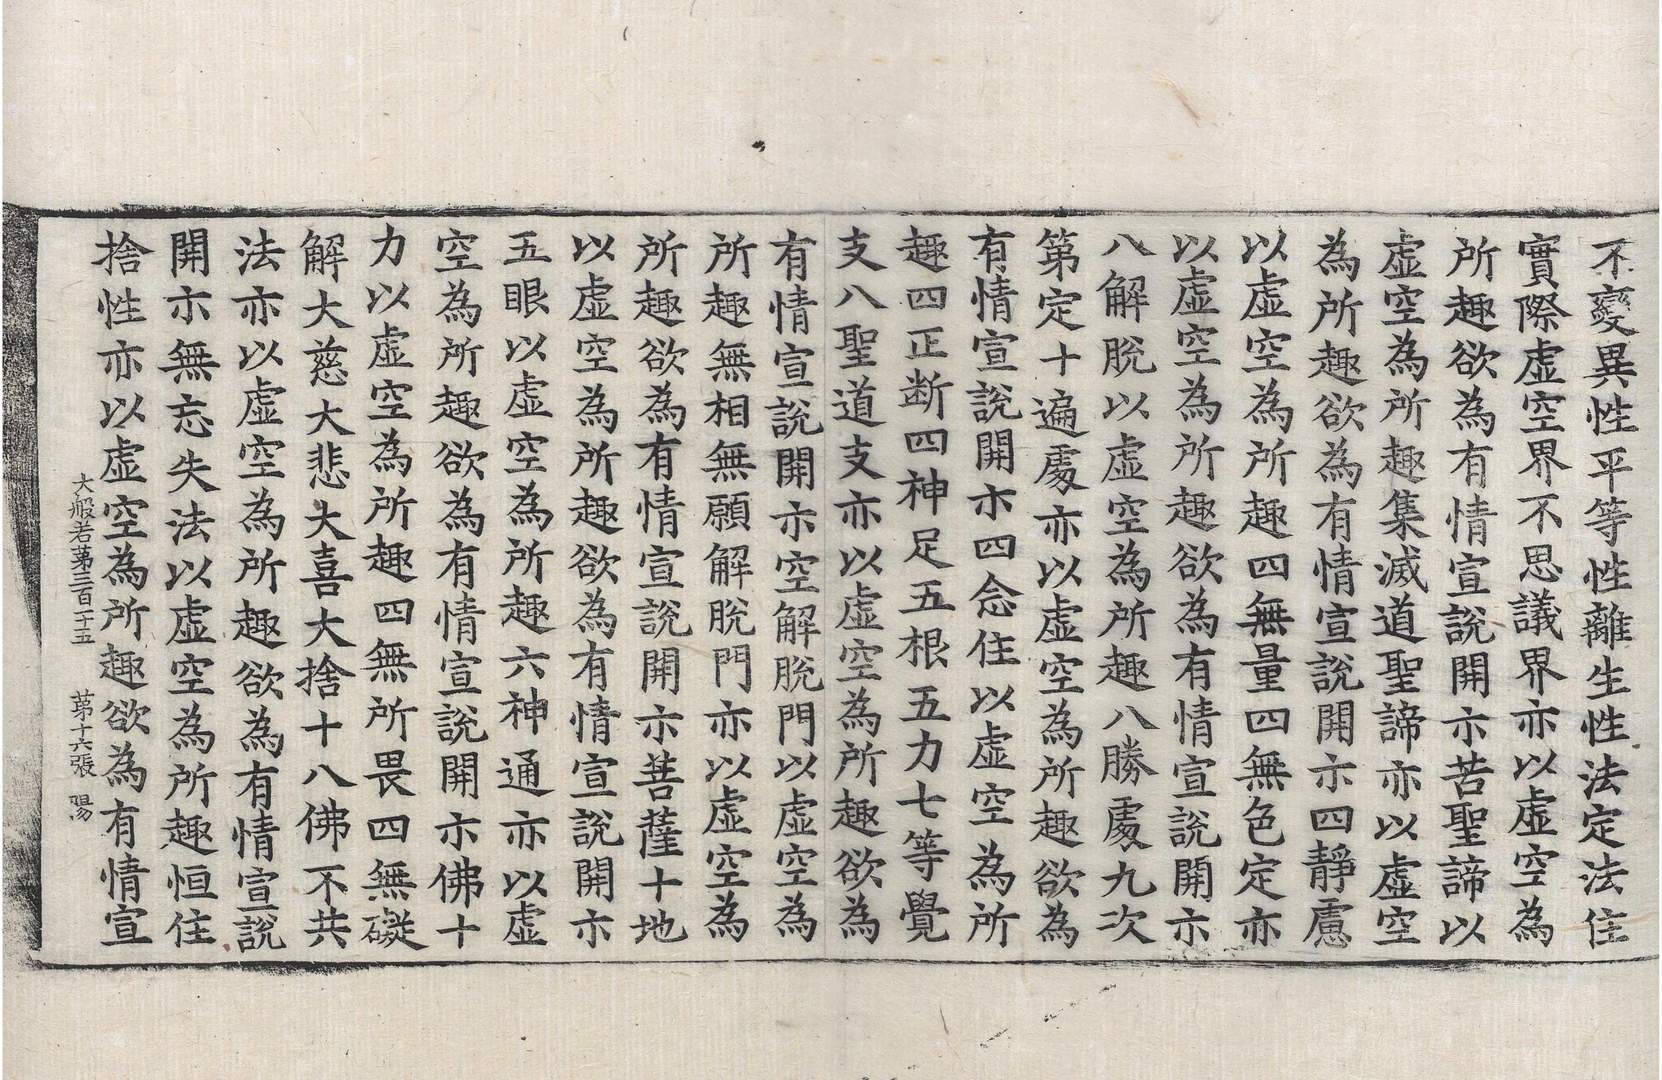 不變異性平等性離生性法定法住
實際虛空界不思議界亦以虛空為
所趣欲為有情宣說開示苦聖諦以
虛空為所趣集滅道聖諦亦以虛空
為所趣欲為有情宣說開示四靜慮
以虛空為所趣四無量四無色定亦
以虛空為所趣欲為有情宣說開示
八解脫以虛空為所趣八勝處九次
第定十遍處亦以虛空為所趣欲為
有情宣說開示四念住以虛空為所
趣四正断四神足五根五力七等覺
支八聖道支亦以虛空為所趣欲為
有情宣說開示空解脫門以虛空為
所趣無相無願解脫門亦以虛空為
所趣欲為有情宣說開示菩薩十地
以虛空為所趣欲為有情宣說開示
五眼以虛空為所趣六神通亦以虛
空為所趣欲為有情宣說開示佛十
力以虛空為所趣四無所畏四無礙
解大慈大悲大喜大捨十八佛不共
法亦以虛空為所趣欲為有情宣說
開示無忘失法以虛空為所趣恒住
捨性亦以虛空為所趣欲為有情宣
大般若第三百一十五 第十六張 陽